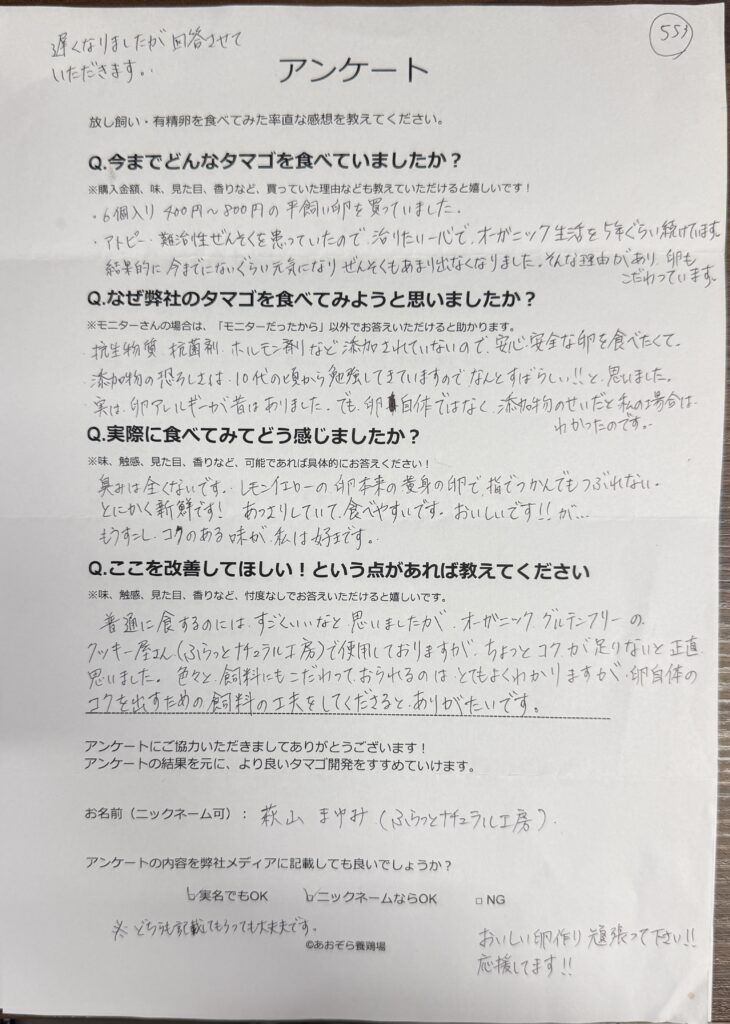 遅くなりましたが回答させて
いただきます。
553
アンケート
放し飼い・有精卵を食べてみた率直な感想を教えてください。
Q.今までどんなタマゴを食べていましたか？
※購入金額、味、見た目、香りなど、買っていた理由なども教えていただけると嬉しいです！
・6個入り 400円～800円の平飼い卵を買っていました。
・アトピー・難治性ぜんそくを患っていたので、治りたい一心で、オーガニック生活を5年ぐらい続けています。
結果的に今までにないぐらい元気になりぜんそくもあまり出なくなりました。そんな理由があり卵も
こだわっています。
Q.なぜ弊社のタマゴを食べてみようと思いましたか？
※モニターさんの場合は、「モニターだったから」以外でお答えいただけると助かります。
抗生物質、抗菌剤、ホルモン剤など添加されていないので、安心・安全な卵を食べたくて。
添加物の恐ろしさは、10代の頃から勉強してきていますのでなんとすばらしい!!と思いました。
実は、卵アレルギーが昔はありました。でも、卵自体ではなく、添加物のせいだと私の場合は
わかったのです。
Q.実際に食べてみてどう感じましたか？
※味、触感、見た目、香りなど、可能であれば具体的にお答えください！
臭みは全くないです。レモンイエローの卵本来の黄身の卵で、指でつかんでもつぶれない。
とにかく新鮮です！ あっさりしていて、食べやすいです。おいしいです!!が…
もうすこし、コクのある味が、私は好きです。
Q.ここを改善してほしい！という点があれば教えてください
※味、触感、見た目、香りなど、忖度なしでお答えいただけると嬉しいです。
普通に食するのには、すごくいいなと思いましたが、オーガニック グルテンフリーの
クッキー屋さん(ふらっとナチュラル工房)で使用しておりますが、ちょっとコクが足りないと正直
思いました。色々と、飼料にもこだわっておられるのはとてもよくわかりますが、卵自体の
コクを出すための飼料の工夫をしてくださると、ありがたいです。
アンケートにご協力いただきましてありがとうございます！
アンケートの結果を元に、より良いタマゴ開発をすすめていけます。
お名前（ニックネーム可）： 萩山 まゆみ (ふらっとナチュラル工房)
アンケートの内容を弊社メディアに記載しても良いでしょうか？
☑実名でもOK ☑ニックネームならOK □NG
※どちらも記載してもらっても大丈夫です。
©あおぞら養鶏場
おいしい卵作り頑張って下さい!!
応援してます!!